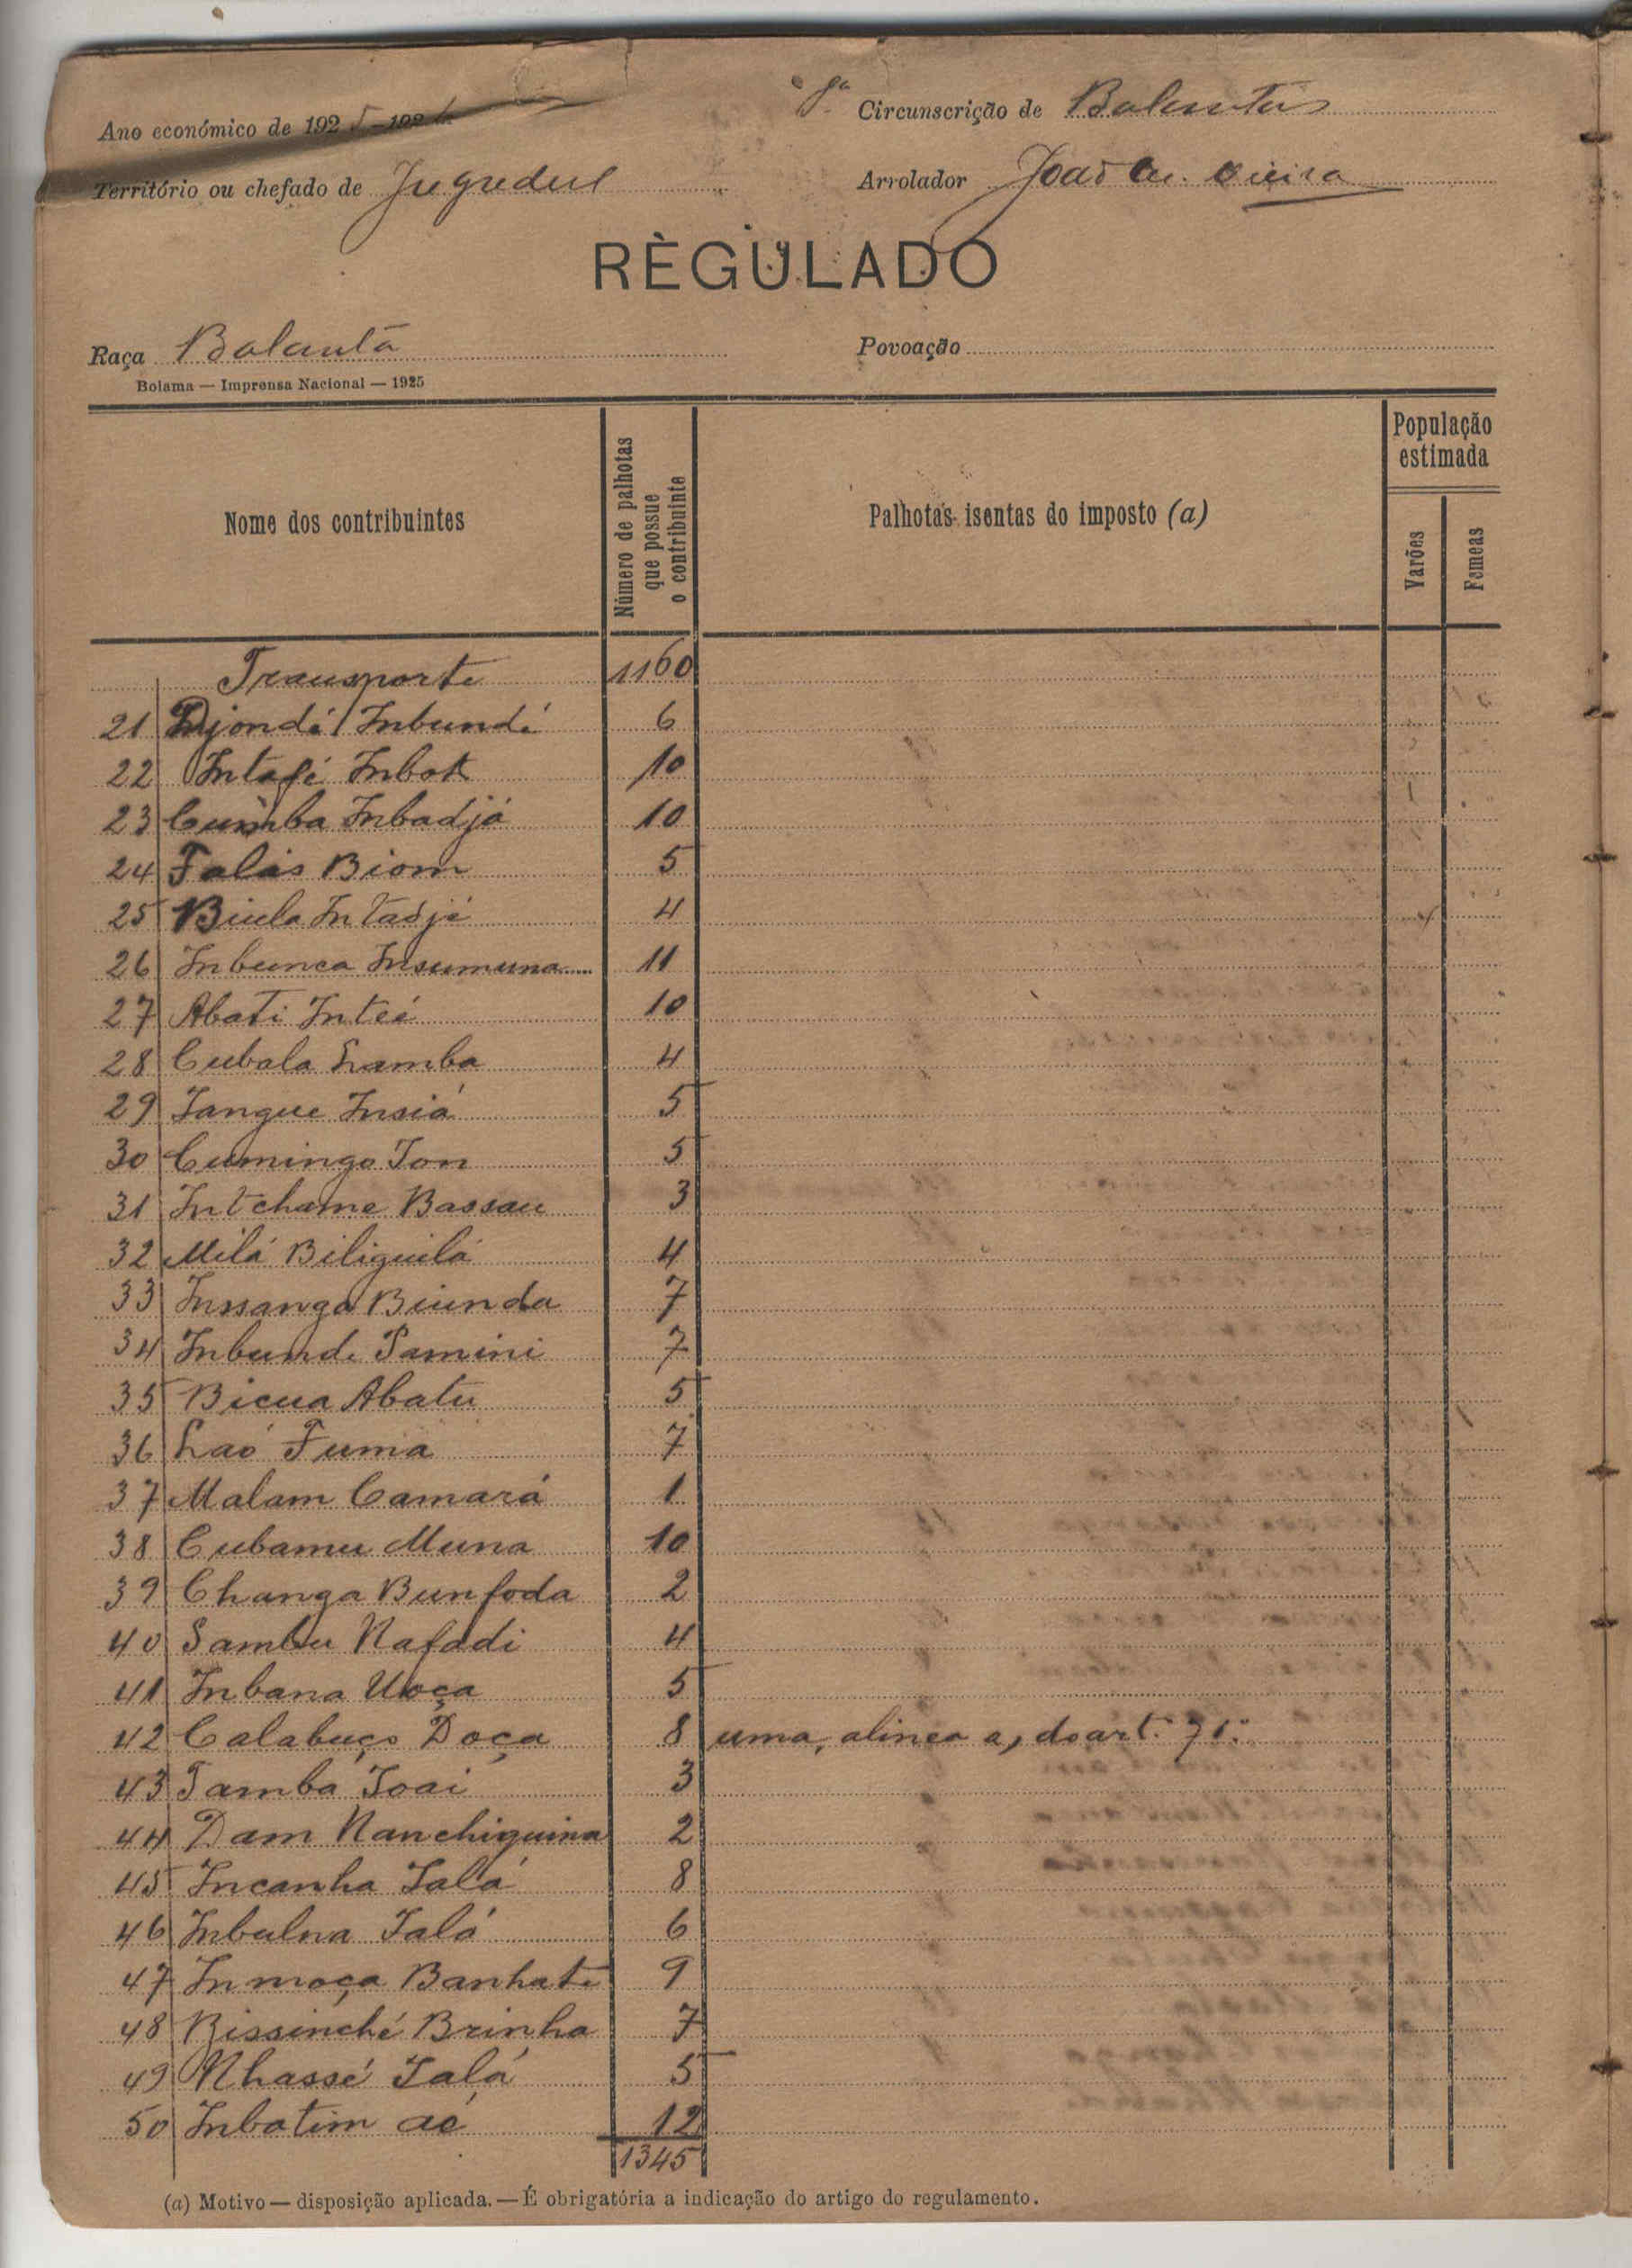 8ª Circunscrição de Balantas
Ano económico de 1925-192
Território ou chefado de Jugudul
Arrolador João M. Vieira
RÈGULADO
Raça Balanta
Povoação
Bolama — Imprensa Nacional — 1925
Nome dos contribuintes
Número de palhotas que possue o contribuinte
Palhotas isentas do imposto (a)
População estimada
Varões
Femeas
Transporte 1160
21 Djondé Inbundé 6
22 Intafé Inbok 10
23 Cumba Inbadjá 10
24 Falás Biom 5
25 Biula Intadjé 4
26 Inbunca Insumuna 11
27 Abati Inteé 10
28 Cubala Lamba 4
29 Tangue Insiá 5
30 Cumingo Ton 5
31 Intchama Bassau 3
32 Milá Biliquilá 4
33 Inssanga Biunda 7
34 Inbunde Samini 7
35 Bicua Abatu 5
36 Laó Fuma 7
37 Malam Camará 1
38 Cubamu Muna 10
39 Changa Bunfoda 2
40 Sambu Nafadi 4
41 Inbana Uoça 5
42 Calabuço Doça 8 uma, alinea a, do art. 71.
43 Tamba Joai 3
44 Dam Nanchiquina 2
45 Incanha Ialá 8
46 Inbulna Ialá 6
47 Inmoça Banhate 9
48 Bissinché Brinha 7
49 Nhassé Ialá 5
50 Inbatim aé 12
1345
(a) Motivo — disposição aplicada. — É obrigatória a indicação do artigo do regulamento.